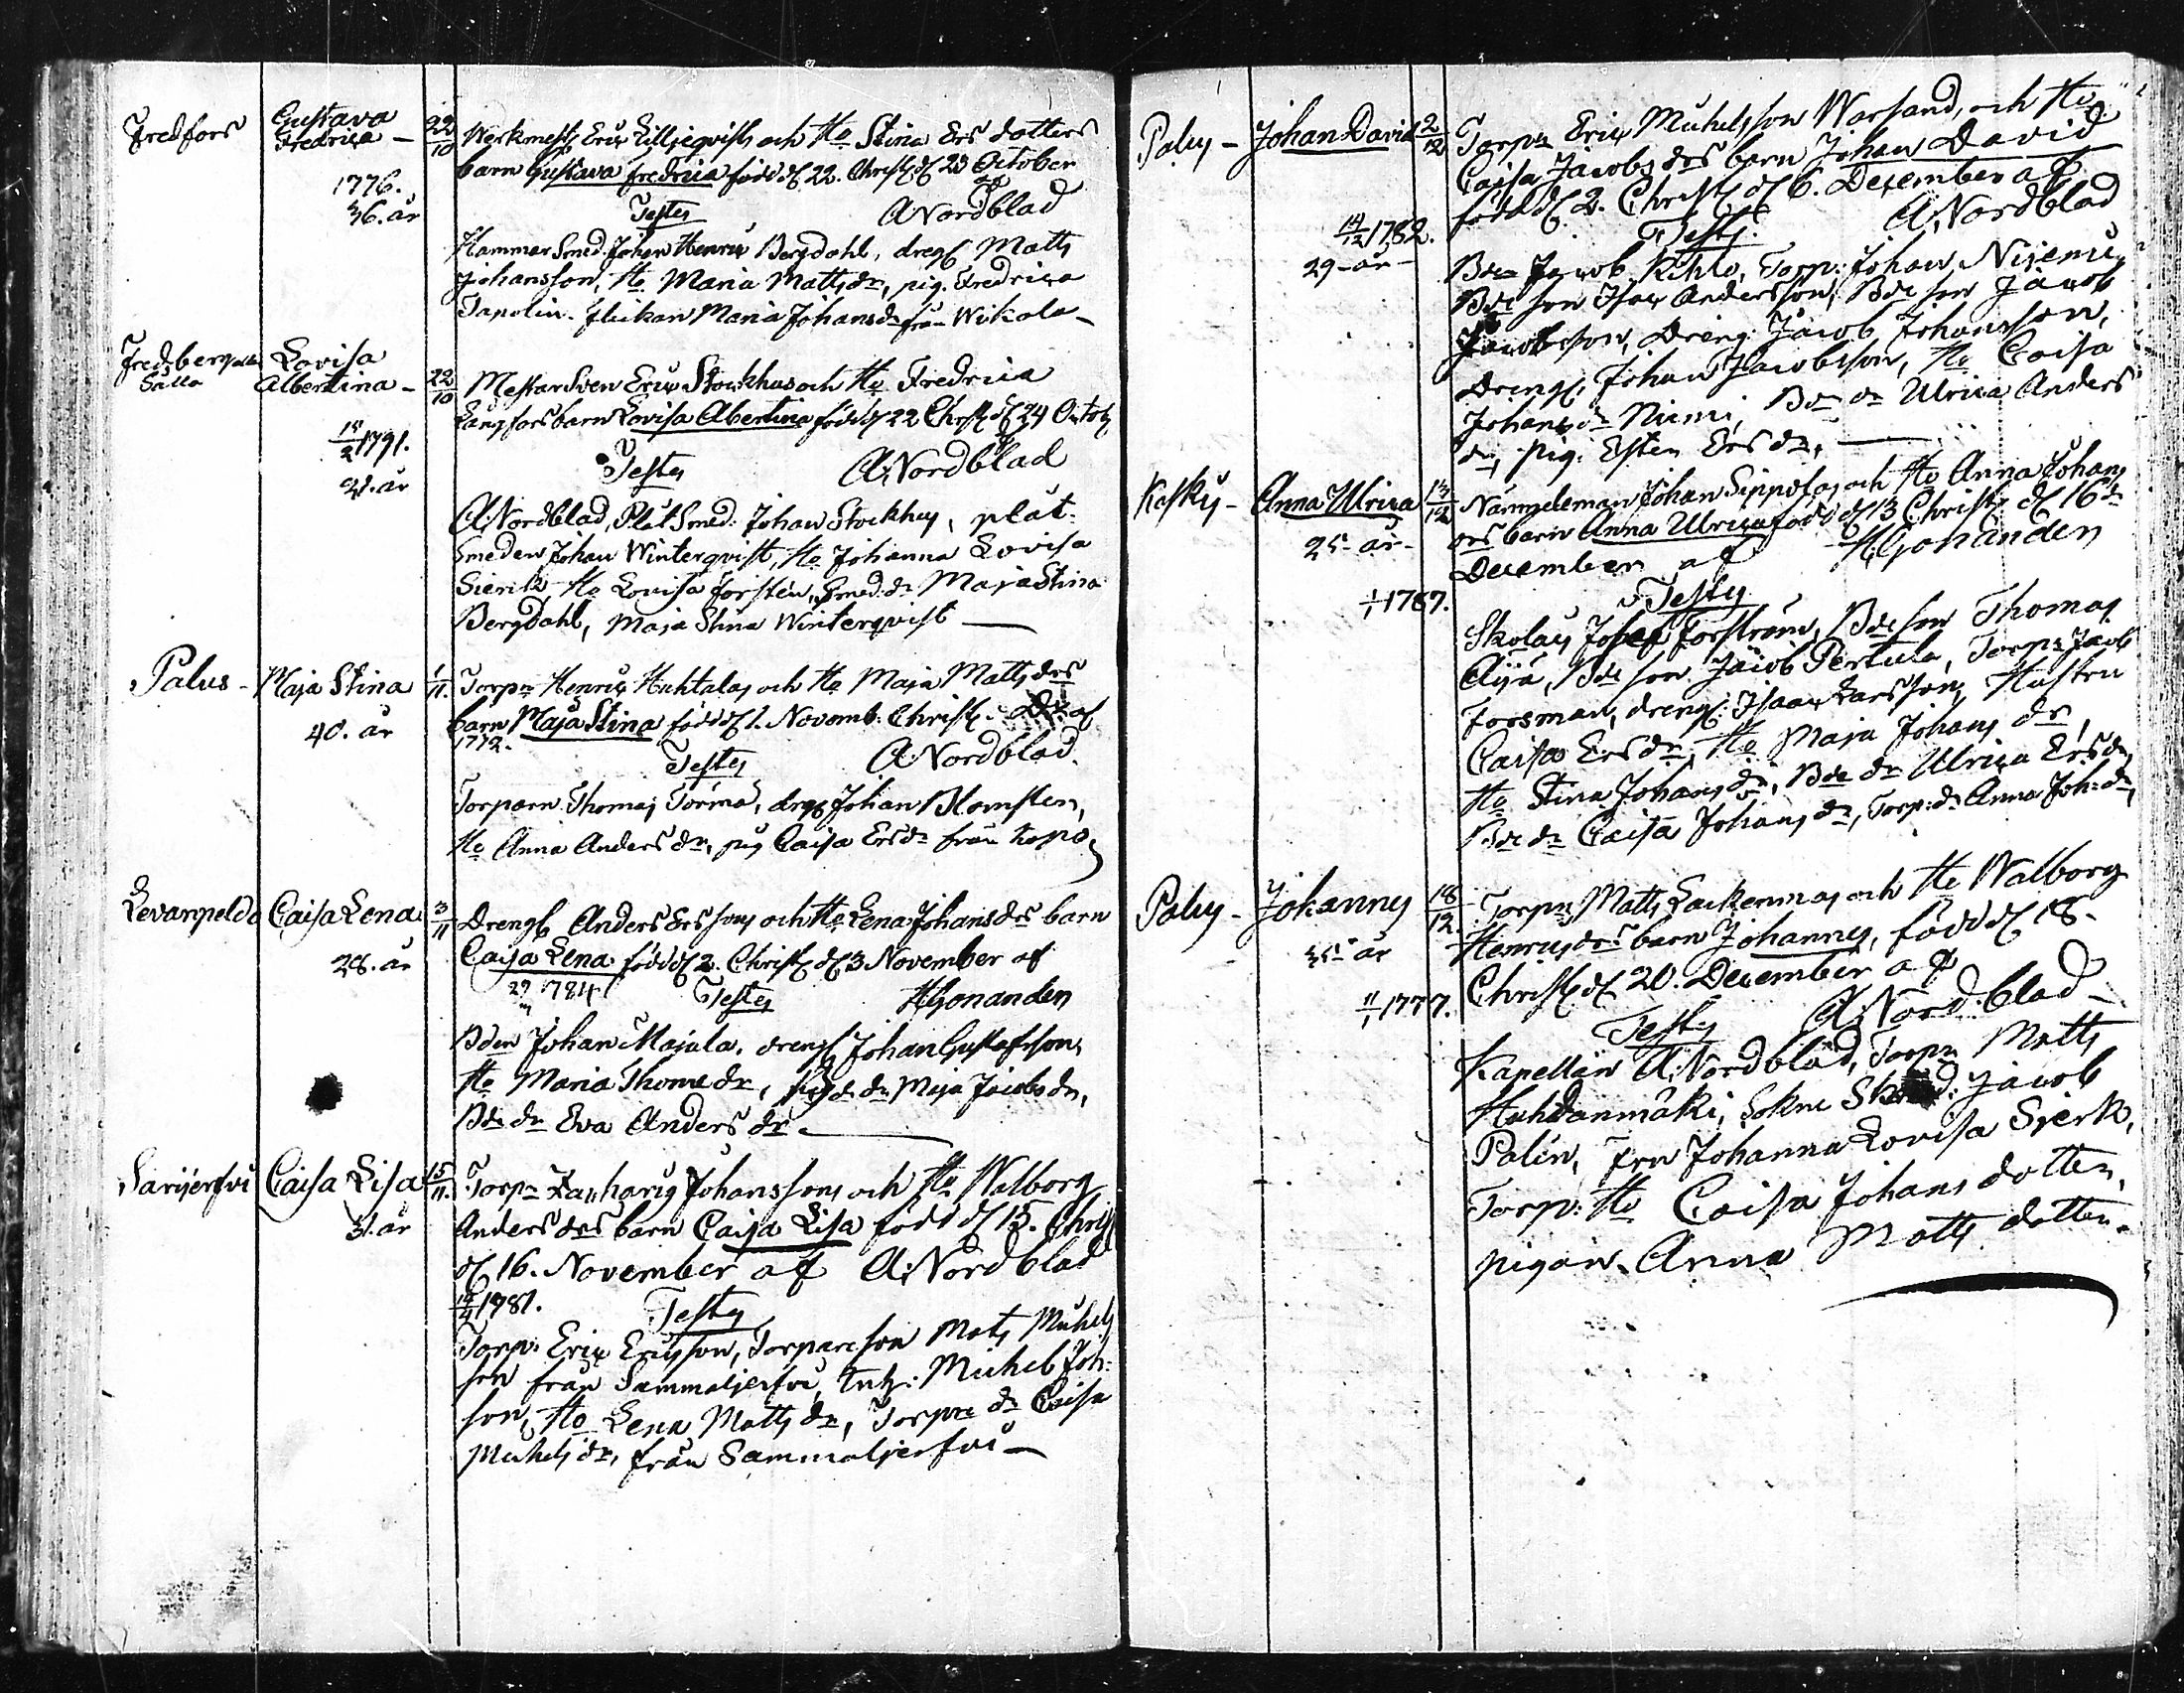 Fredfors
Gustava
Fredrica —
22/10
Werkmest Eric Lilljeqvist och Ho Stina Ers dotters
barn Gustava Fredrica född d. 22. Christ d. 23 October
1776. af
36. år
Testes A:Nordblad
Hammar Smed Johan Henric Bergdahl, dreng Matts
Johansson, Ho Maria Matts dr, pig. Fredrica
Tapolin. flickan Maria Johans dr från Wikala —
Fredsberg
Lovisa
Albertina —
22/10
Mestar Sven Eric Stockhus och Ho Fredrica
Långfors barn Lovisa Albertina född d 22 Christ d 24 Octob
1791.
21. år
Testes A:Nordblad
A:Nordblad, Plåt Smed: Johan Stockhus, plåt-
Smeden Johan Winterqvist, Ho Johanna Lovisa
Sierck, Ho Lovisa Forstén, Smed: dr Maja Stina
Bergdahl, Maja Stina Winterqvist —
Palus - Maja Stina
1/11.
Torpr Henric Huhtalas och Ho Maja Matts drs
barn Maja Stina född d 1. Novemb: Christ.
40. år
1772.
Testes A:Nordblad.
Torparn Thomas Törmä, dreng Johan Blomsten,
Ho Anna Anders dr, pig Caisa Ers dr från
Levanpeldo Caisa Lena
3/11
Dreng Anders Erssons och Ho Lena Johans drs barn
Caisa Lena född d 2. Christ d 3 November af
28. år
1784
Testes HGonanden
Bden Johan Majala. dreng Johan Gustafsson,
Ho Maria Thome dr, dr Maja Jacobs dr,
Bde dr Eva Anders dr —
Sarijerfvi Caisa Lisa
15/11.
Torpr Zacharis Johanssons och Ho Walborg
Anders drs barn Caisa Lisa född d 15. Christ
31. år
d 16. November af A:Nordblad
1781.
Testes
Torp: Eric Ericsson, Torpareson Mats Michels
son från Sammaljerfvi, Michel Joh:
son, Ho Lena Matts dr, Torpare dr Caisa
Michels dr, från Sammaljerfvi —
Palus - Johan David
2/12
Torpr Eric Michelsson Warsand, och Ho
Caisa Jacobs drs barn Johan David
född d 2. Christ d 6. December af
1782.
29- år -
Testes. A:Nordblad
Bden Jacob Kihlo, Torp: Johan Nijemi,
Bde son Isac Andersson, Bde son Jacob
Jacobsson, Dreng Jacob Johansson,
Dreng: Johan Jacobsson, Ho Caisa
Johans dr Niemi, Bde dr Ulrica Anders
dr, pig: Ester Ers dr, —
Kosky - Anna Ulrica
13/12
Nämndeman Johan Sippolas och Ho Anna Johans
drs barn Anna Ulrica född d 13 Christ d 16de
25- år -
December af HGonanden
1/1 1787.
Testes
Skolas Josef Forström, Bde son Thomas
Äijä, Bde son Jacob Pertula, Torpr Jacob
Forsman, dreng: Isaac Larsson, Hustru
Caisa Ers dr, Ho Maja Johans dr,
Ho Stina Johans dr, Bde dr Ulrica Ers dr,
Bde dr Caisa Johans dr, Torp: dr Anna Joh: dr,
Palus - Johannes
18/12.
Torpr Matts Lackenmas och Ho Walborg
Henrics drs barn Johannes, född d 18.
35- år
Christ d 20. December af
11/1 1777.
Testes A:Nordblad —
Kapellan A:Nordblad, Torpr Matts
Huhdanmäki, Sokne Jacob
Palén, Fru Johanna Lovisa Sierk,
Torp: Ho Caisa Johans dotter,
pigan Anna Matts dotter.